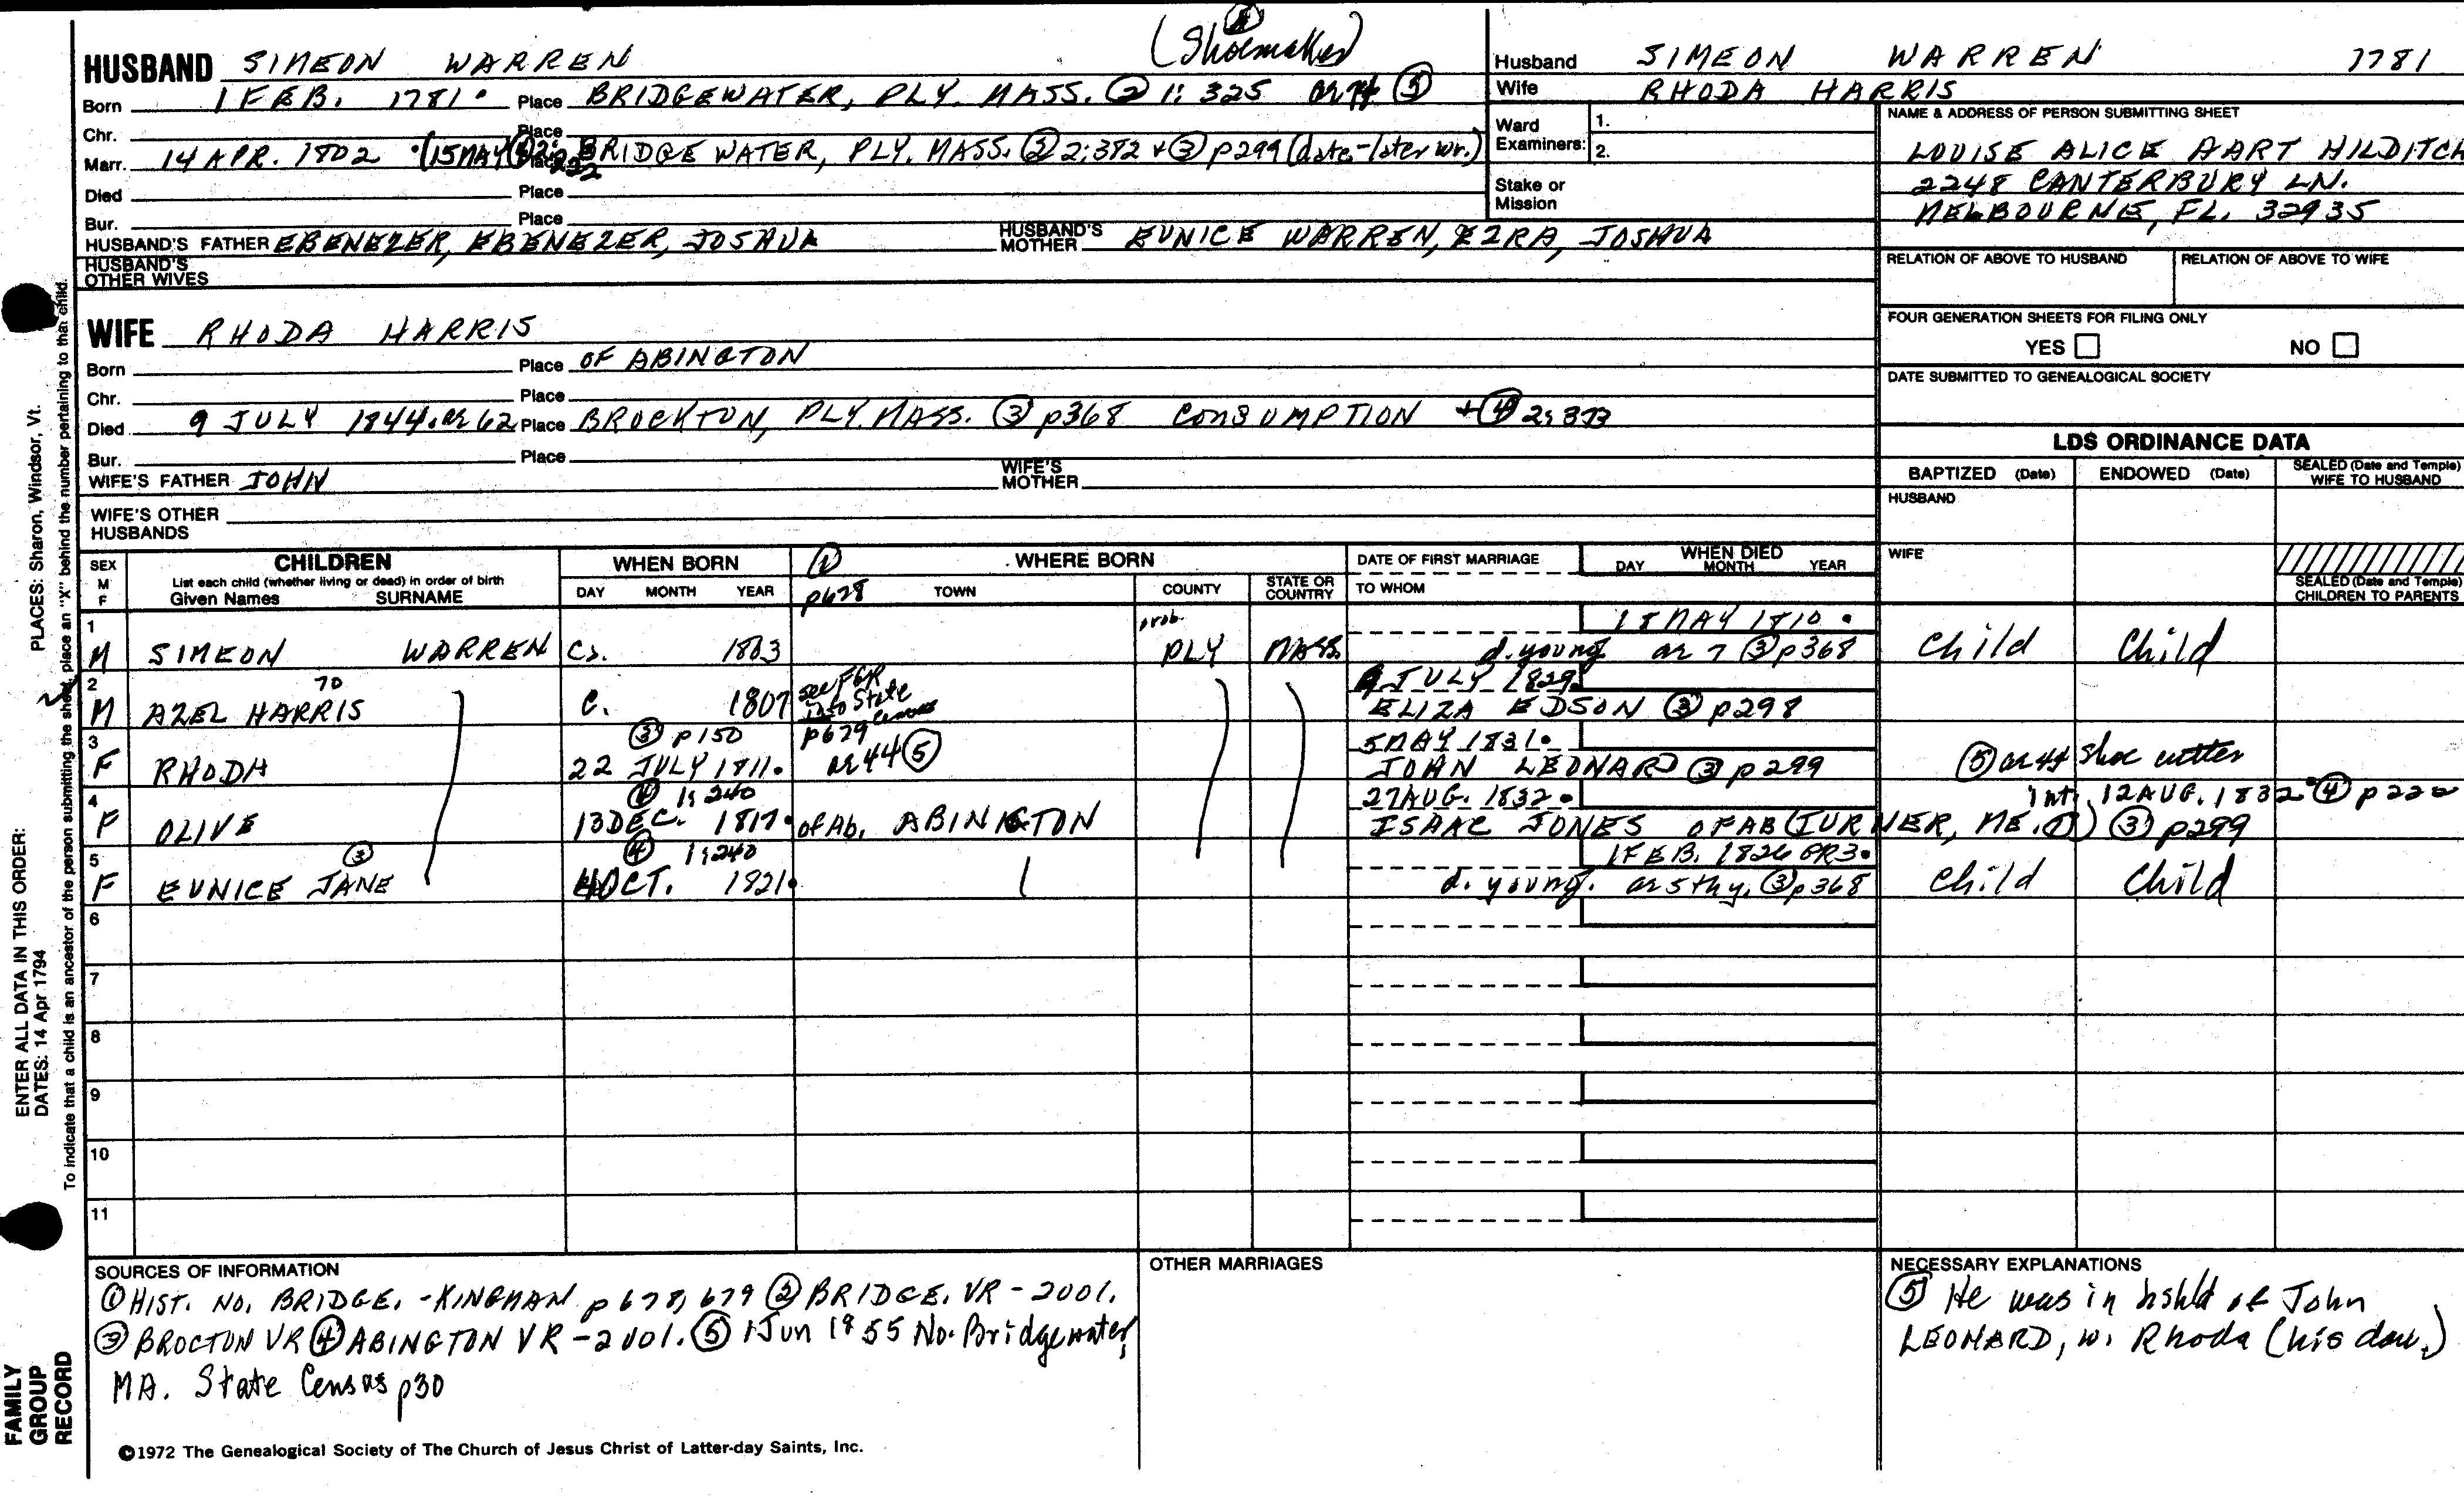 (Shoemaker)
HUSBAND SIMEON WARREN
Born 1 FEB. 1781. Place BRIDGEWATER, PLY. MASS. ② 1:325 ae 74 ⑤
Chr. Place
Marr. 14 APR. 1802 (15 MAY ④ 2:222 Place BRIDGEWATER, PLY. MASS. ② 2:382 + ③ p299 (date-later wr.)
Died Place
Bur. Place
HUSBAND'S FATHER EBENEZER, EBENEZER, JOSHUA HUSBAND'S MOTHER EUNICE WARREN, EZRA, JOSHUA
HUSBAND'S OTHER WIVES
WIFE RHODA HARRIS
Born Place OF ABINGTON
Chr. Place
Died 9 JULY 1844. ae 62 Place BROCKTON, PLY. MASS. ③ p368 CONSUMPTION + ④ 2:373
Bur. Place
WIFE'S FATHER JOHN WIFE'S MOTHER
WIFE'S OTHER HUSBANDS
Husband SIMEON WARREN 1781
Wife RHODA HARRIS
Ward Examiners: 1.
2.
Stake or Mission
NAME & ADDRESS OF PERSON SUBMITTING SHEET
LOUISE ALICE AART HILDITCH
2248 CANTERBURY LN.
MELBOURNE, FL. 32935
RELATION OF ABOVE TO HUSBAND RELATION OF ABOVE TO WIFE
FOUR GENERATION SHEETS FOR FILING ONLY
YES NO
DATE SUBMITTED TO GENEALOGICAL SOCIETY
LDS ORDINANCE DATA
BAPTIZED (Date) ENDOWED (Date) SEALED (Date and Temple) WIFE TO HUSBAND
HUSBAND
WIFE
SEALED (Date and Temple) CHILDREN TO PARENTS
SEX M F
CHILDREN
List each child (whether living or dead) in order of birth
Given Names SURNAME
WHEN BORN
DAY MONTH YEAR
① p678
WHERE BORN
TOWN COUNTY STATE OR COUNTRY
DATE OF FIRST MARRIAGE
TO WHOM
WHEN DIED
DAY MONTH YEAR
1 prob. 18 MAY 1810.
M SIMEON WARREN c. 1803 PLY MASS. d. young ae 7 ③ p368 Child Child
2 70 see FGR State Census 9 JULY 1829.
M AZEL HARRIS c. 1807 ELIZA EDSON ③ p298
3 ③ p150 p679 5 MAY 1831.
F RHODA 22 JULY 1811. ae 44 ⑤ JOHN LEONARD ③ p299 ⑤ ae 44 shoe cutter
4 ④ 1:240 27 AUG. 1832. int. 12 AUG. 1832. ④ p222
F OLIVE 13 DEC. 1817. of Ab. ABINGTON ISAAC JONES OF AB (TURNER, ME. ①) ③ p299
5 ③ ④ 1:240 1 FEB. 1826 GR3.
F EUNICE JANE 4 OCT. 1821. d. young. ae 5thy, ③ p368 Child Child
6
7
8
9
10
11
SOURCES OF INFORMATION
① HIST. NO. BRIDGE. - KINGMAN p 678, 679 ② BRIDGE. VR - 2001.
③ BROCTON VR ④ ABINGTON VR - 2001. ⑤ 1 Jun 1855 No. Bridgewater,
MA. State Census p30
OTHER MARRIAGES
NECESSARY EXPLANATIONS
⑤ He was in hshld of John
LEONARD, w. Rhoda (his dau.)
©1972 The Genealogical Society of The Church of Jesus Christ of Latter-day Saints, Inc.
ENTER ALL DATA IN THIS ORDER:
DATES: 14 Apr 1794
PLACES: Sharon, Windsor, Vt.
To indicate that a child is an ancestor of the person submitting the sheet, place an "X" behind the number pertaining to that child.
FAMILY GROUP RECORD